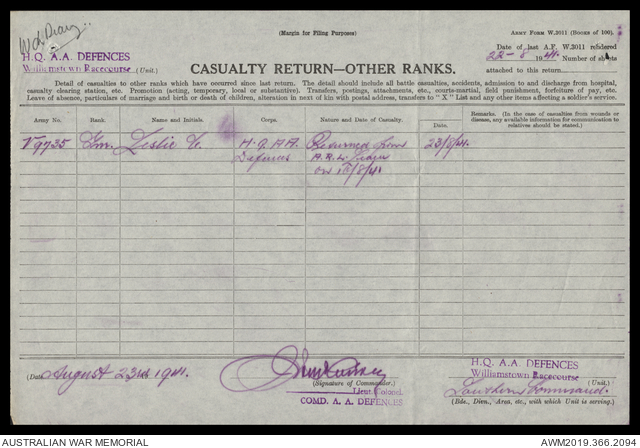 W.D. Diary.
(Margin for Filing Purposes)
Army Form W.3011 (Books of 100).
H.Q. A.A. DEFENCES
Williamstown Racecourse. (Unit.)
Date of last A.F. W.3011 rendered
22-8 1941. Number of sheets
attached to this return
CASUALTY RETURN—OTHER RANKS.
Detail of casualties to other ranks which have occurred since last return. The detail should include all battle casualties, accidents, admission to and discharge from hospital,
casualty clearing station, etc. Promotion (acting, temporary, local or substantive). Transfers, postings, attachments, etc., courts-martial, field punishment, forfeiture of pay, etc.
Leave of absence, particulars of marriage and birth or death of children, alteration in next of kin with postal address, transfers to "X" List and any other items affecting a soldier's service.
Army No. Rank. Name and Initials. Corps. Nature and Date of Casualty. Date. Remarks. (In the case of casualties from wounds or
disease, any available information for communication to
relatives should be stated.)
V9735 Gnr. Leslie H.Q. AA Returned from 23/8/41.
Defences A.R.W. Leave
on /8/41
(Date) August 23rd 1941.
(Signature of Commander.)
Lieut Colonel.
COMD. A. A. DEFENCES
H.Q. A.A. DEFENCES
Williamstown Racecourse (Unit.)
Southern Command.
(Bde., Divn., Area, etc., with which Unit is serving.)
AUSTRALIAN WAR MEMORIAL
AWM2019.366.2094